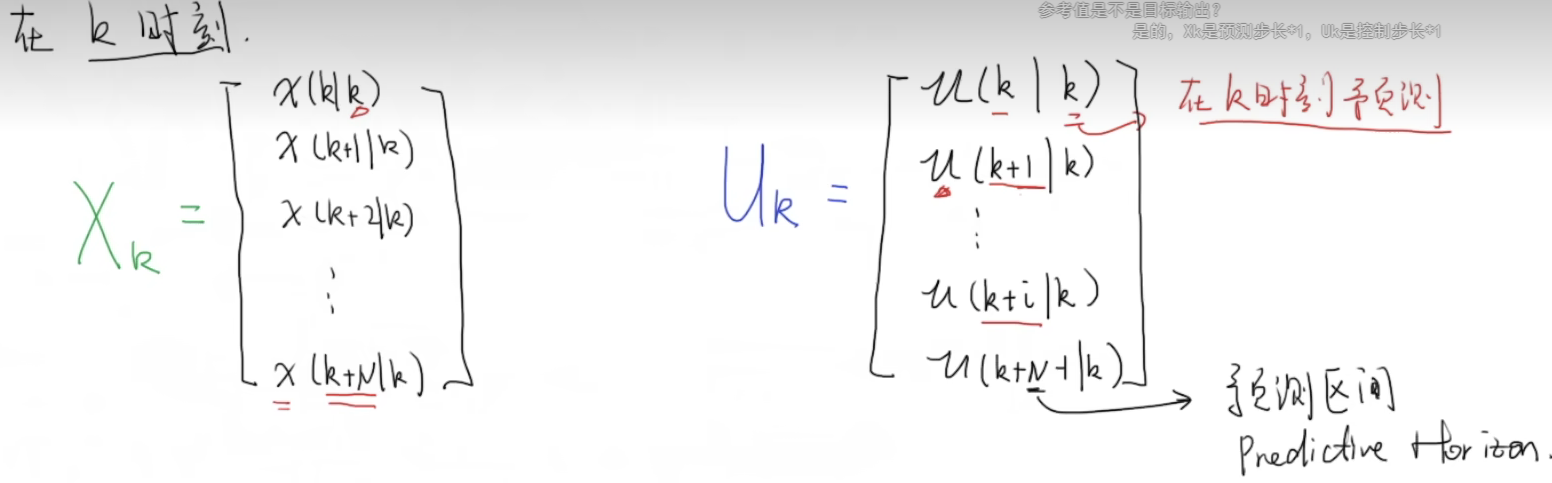 在 k 时刻.
参考值是不是目标输出?
是的，Xk是预测步长*1，Uk是控制步长*1
X_k =
x(k|k)
x(k+1|k)
x(k+2|k)
⋮
x(k+N|k)
U_k =
u(k|k)
u(k+1|k)
⋮
u(k+i|k)
u(k+N-1|k)
在k时刻预测
预测区间
Predictive Horizon.